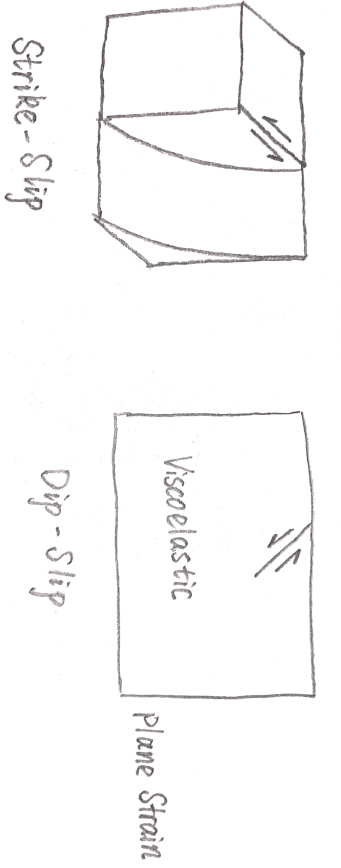 Strike-Slip
Viscoelastic
Dip-Slip
Plane Strain